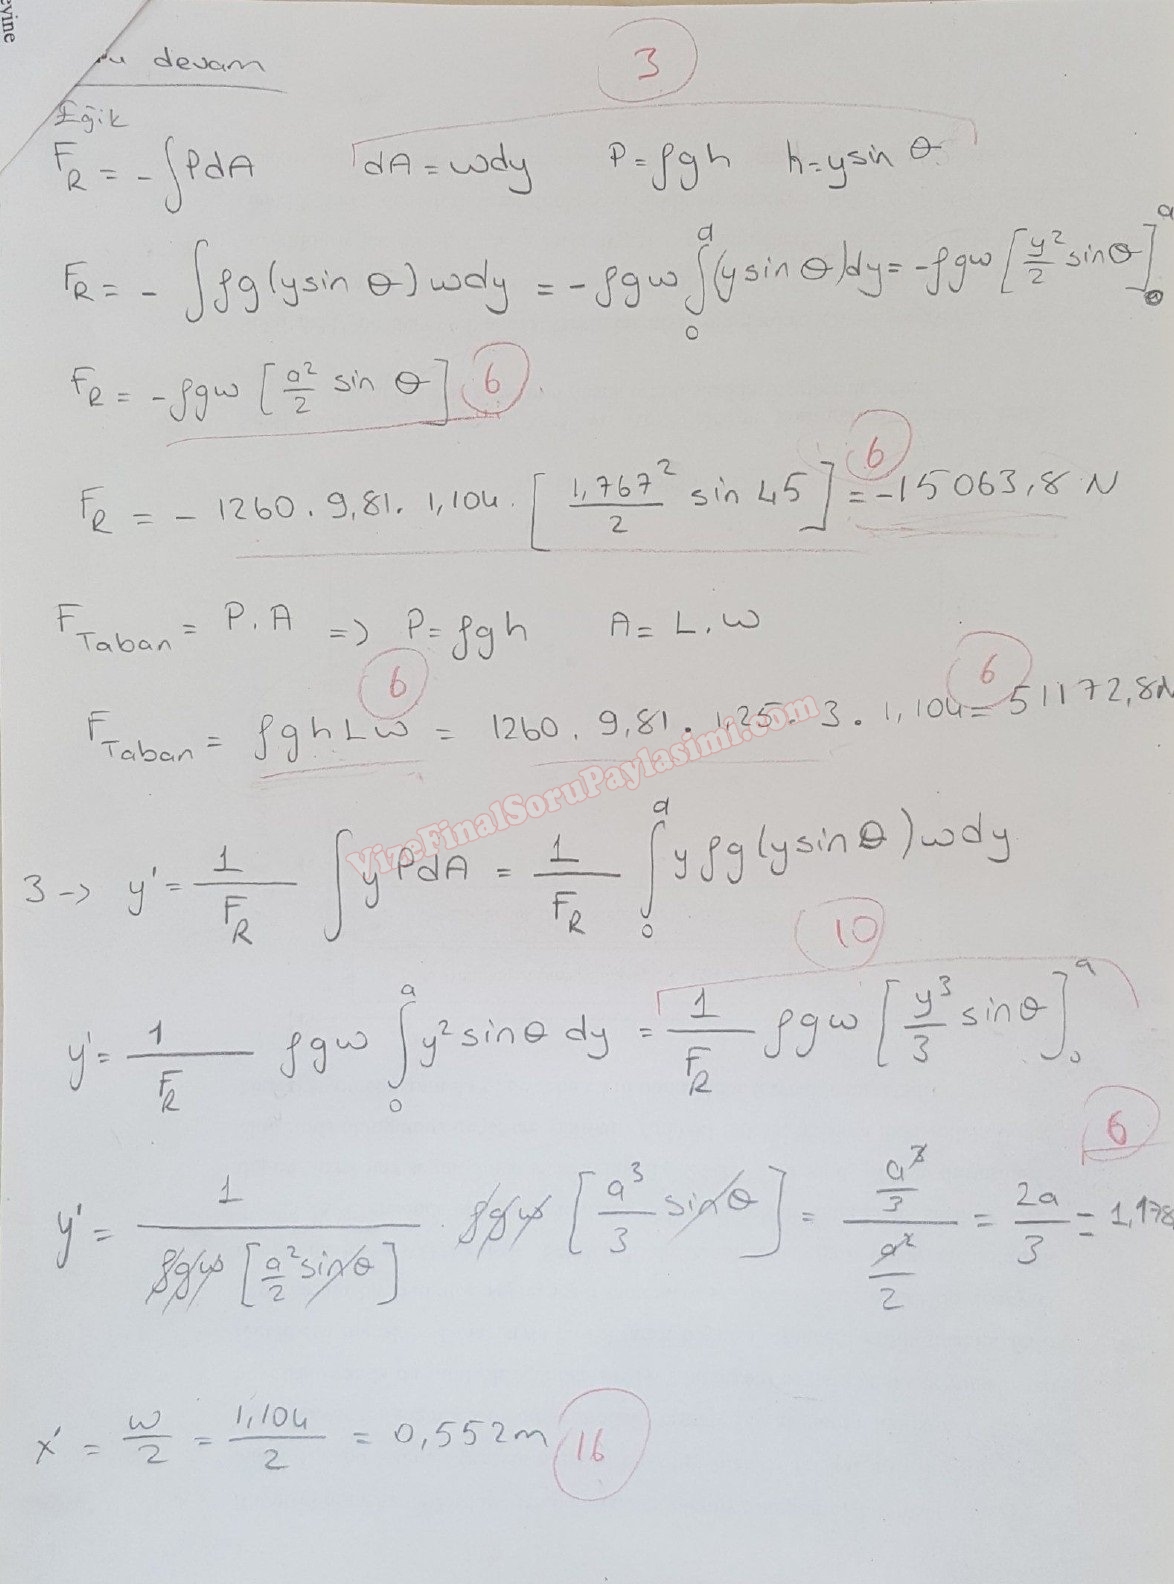 evine
devam
3
Eğik
F_R = - ∫PdA dA = wdy P = ρgh h = y sin θ
F_R = - ∫ρg(ysin θ) wdy = - ρgw ∫₀ᵃ (ysin θ)dy = -ρgw [y²/2 sinθ]₀ᵃ
F_R = - ρgw [a²/2 sin θ] 6
F_R = - 1260 . 9,81 . 1,104 . [1,767²/2 sin 45] = -15063,8 N 6
F_Taban = P. A => P = ρgh A = L. w
F_Taban = ρghLw 6 = 1260 . 9,81 . 1,25 . 3 . 1,104 = 51172,8N 6
VizeFinalSoruPaylasimi.com
3 -> y' = 1/F_R ∫yPdA = 1/F_R ∫₀ᵃ yρg(ysinθ)wdy
10
y' = 1/F_R ρgw ∫₀ᵃ y²sinθ dy = 1/F_R ρgw [y³/3 sinθ]₀ᵃ
6
y' = 1/(ρgw [a²/2 sinθ]) . ρgw [a³/3 sinθ] = (a³/3)/(a²/2) = 2a/3 = 1,178
x' = w/2 = 1,104/2 = 0,552m 16